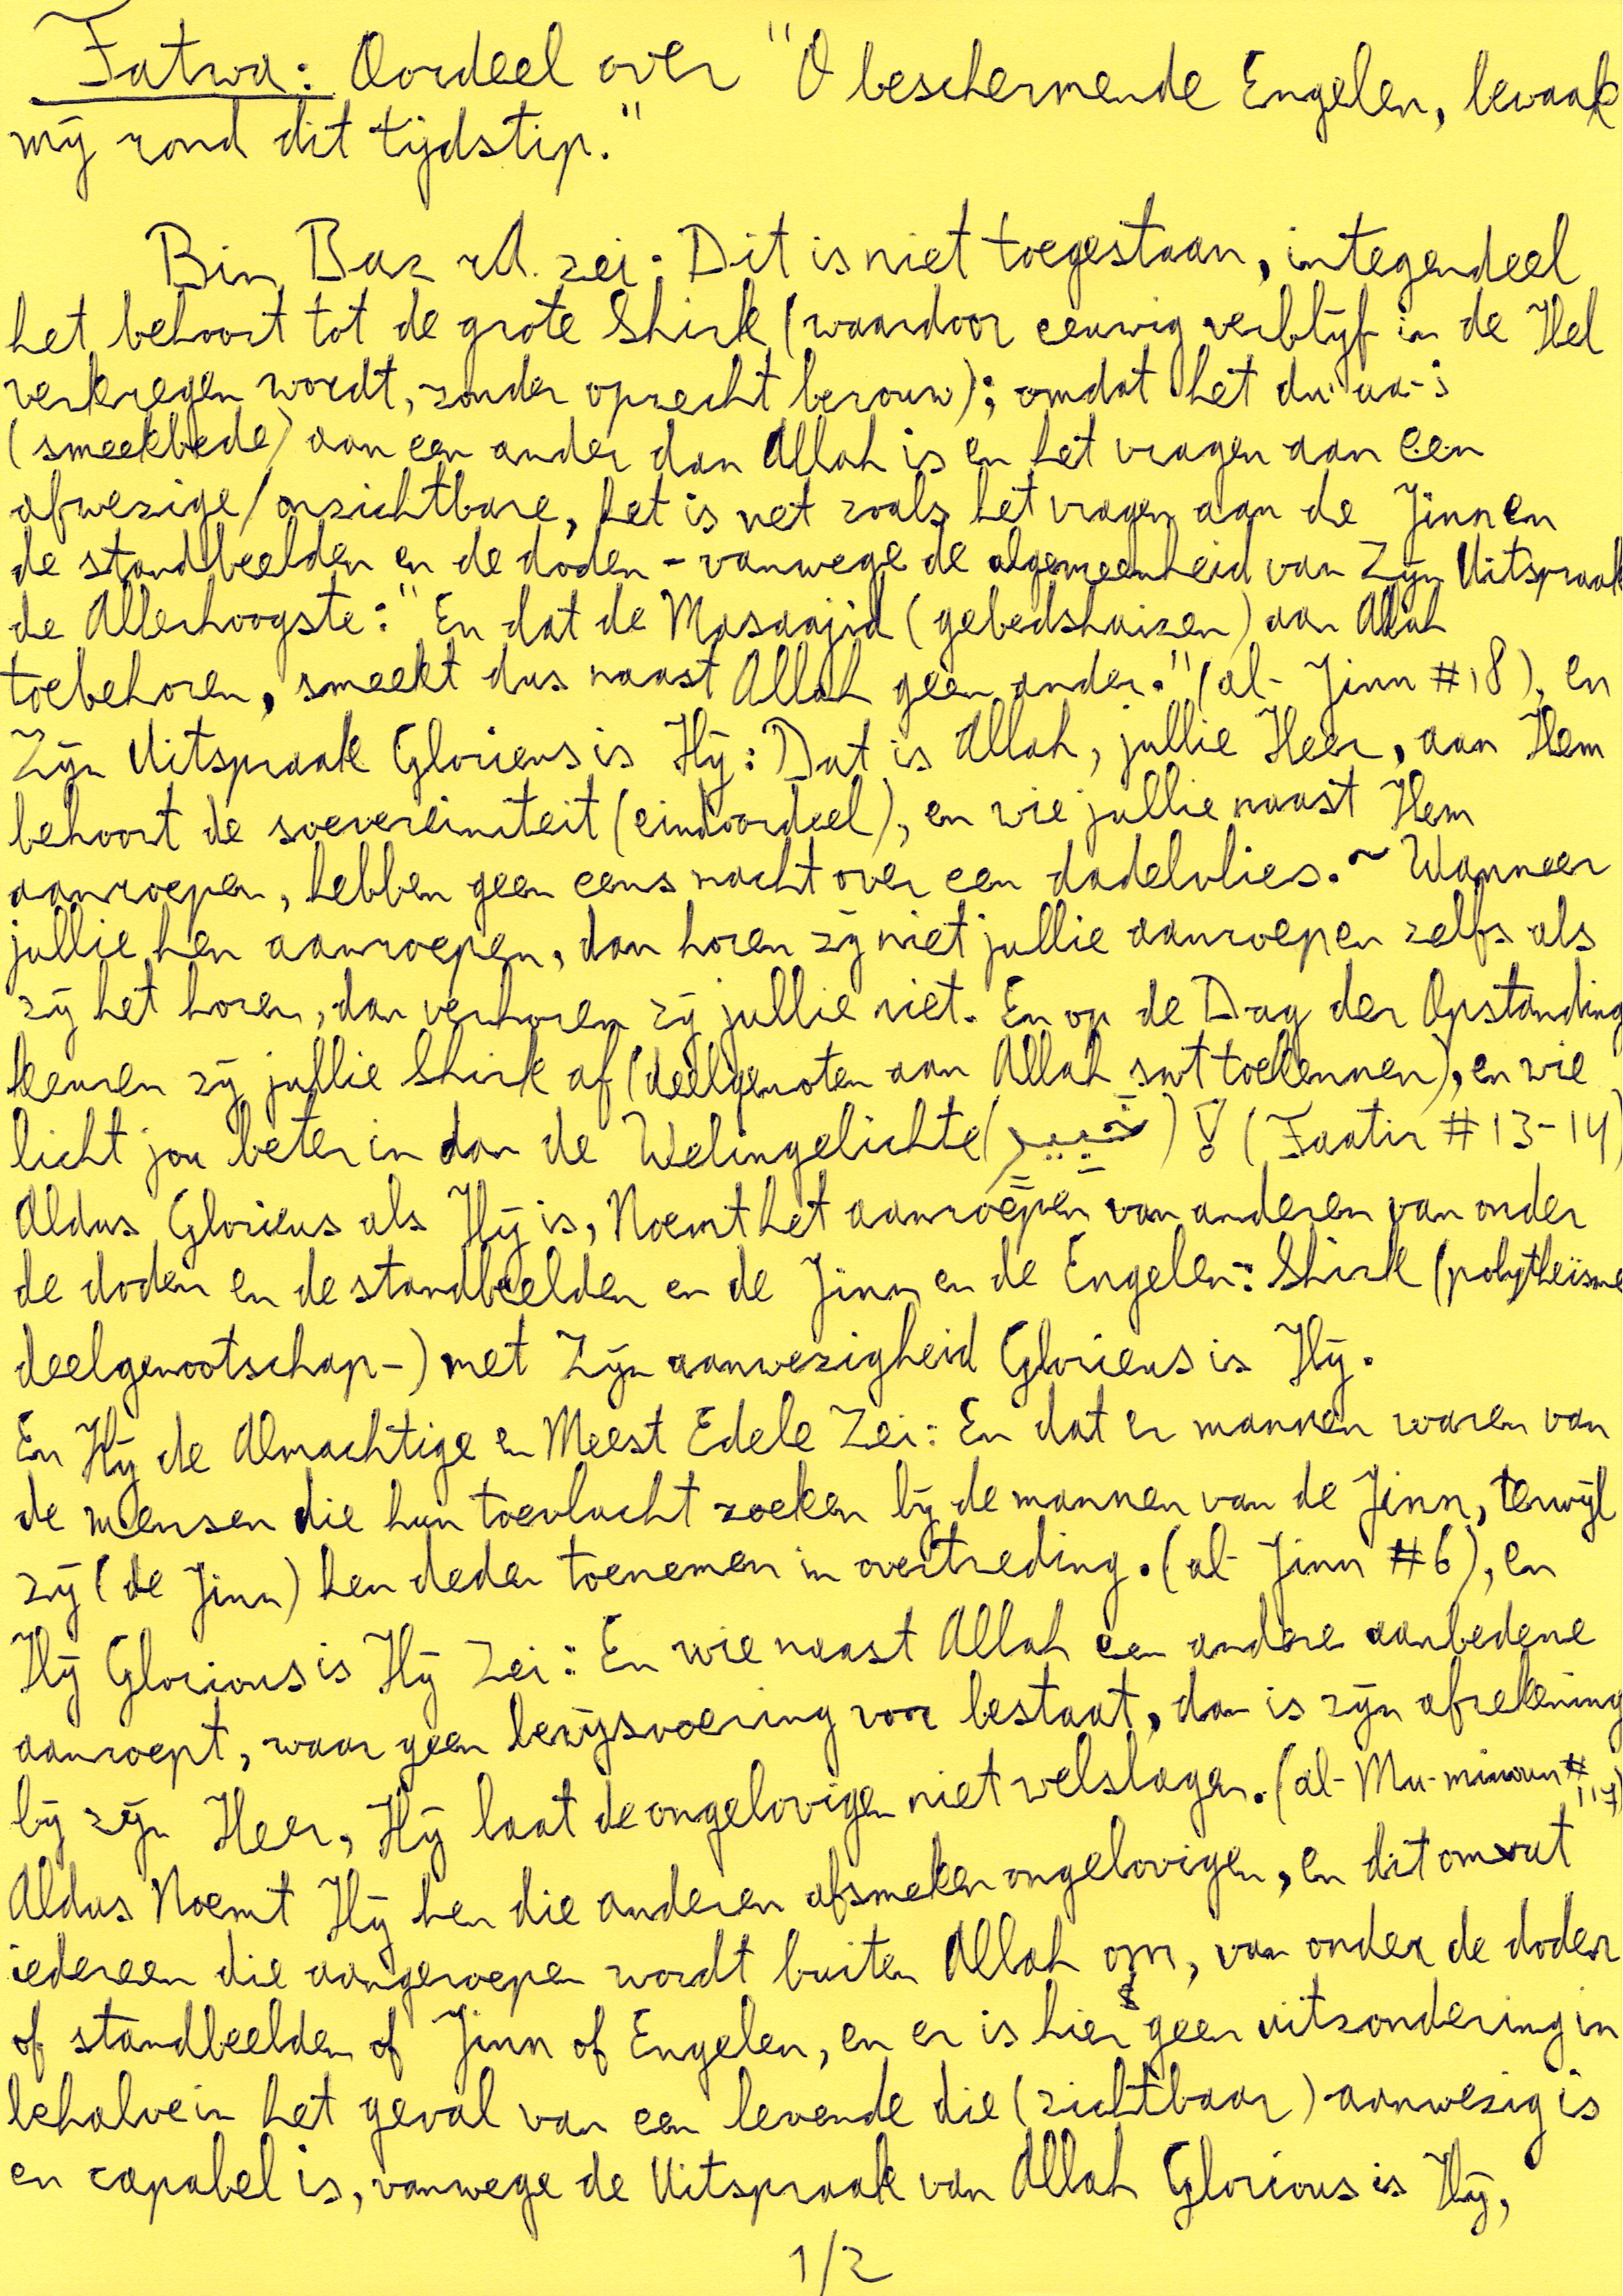 Fatwa: Oordeel over "O beschermende Engelen, bewaak
mij rond dit tijdstip."
Bin Baz rh. zei: Dit is niet toegestaan, integendeel
het behoort tot de grote Shirk (waardoor eeuwig verblijf in de Hel
verkregen wordt, zonder oprecht berouw); omdat het du'aa-:
(smeekbede) aan een ander dan Allah is en het vragen aan een
afwezige/onzichtbare, het is net zoals het vragen aan de Jinn en
de standbeelden en de doden - vanwege de algemeenheid van Zijn Uitspraak
de Allerhoogste: "En dat de Masaajid (gebedshuizen) aan Allah
toebehoren, smeekt dus naast Allah geen ander." (al-Jinn #18), en
Zijn Uitspraak Glorieus is Hij: Dat is Allah, jullie Heer, aan Hem
behoort de soevereiniteit (eindoordeel), en wie jullie naast Hem
aanroepen, hebben geen eens macht over een dadelvlies. ~ Wanneer
jullie hen aanroepen, dan horen zij niet jullie aanroepen zelfs als
zij het horen, dan verhoren zij jullie niet. En op de Dag der Opstanding
keuren zij jullie Shirk af (deelgenoten aan Allah swt toekennen), en wie
licht jou beter in dan de Welingelichte (خَبِيرٍ)! (Faatir #13-14)
Aldus Glorieus als Hij is, Noemt het aanroepen van anderen van onder
de doden en de standbeelden en de Jinn en de Engelen: Shirk (polytheïsme
deelgenootschap-) met Zijn aanwezigheid Glorieus is Hij.
En Hij de Almachtige en Meest Edele Zei: En dat er mannen waren van
de mensen die hun toevlucht zoeken bij de mannen van de Jinn, terwijl
zij (de Jinn) hen deden toenemen in overtreding. (al-Jinn #6), en
Hij Glorious is Hij Zei: En wie naast Allah een andere aanbedene
aanroept, waar geen bewijsvoering voor bestaat, dan is zijn afrekening
bij zijn Heer, Hij laat de ongelovigen niet welslagen. (al-Mu-minoun #117)
Aldus Noemt Hij hen die anderen afsmeken ongelovigen, en dit omvat
iedereen die aangeroepen wordt buiten Allah om, van onder de doden
of standbeelden of Jinn of Engelen, en er is hier geen uitzondering in
behalve in het geval van een levende die (zichtbaar) aanwezig is
en capabel is, vanwege de Uitspraak van Allah Glorious is Hij,
1/2